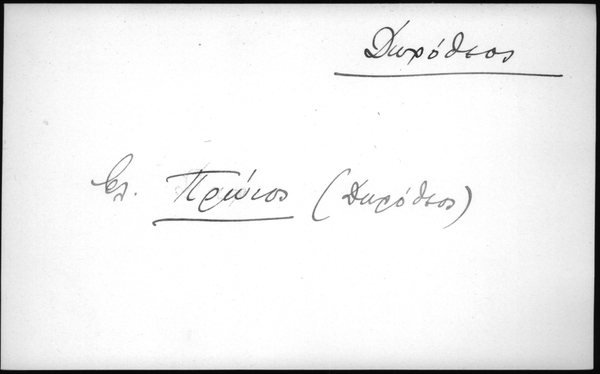 Δωρόθεος
βλ. Πρώιος (Δωρόθεος)